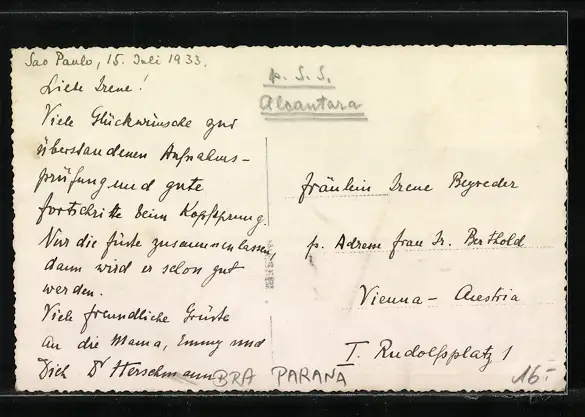 Sao Paulo, 15. Juli 1933.
p. S. S.
Alcantara
Liebe Irene!
Viele Glückwünsche zur
überstandenen Aufnahms-
prüfung und gute
fortschritte beim Kopfsprung.
Nur die füsse zusammenlassen,
dann wird er schon gut
werden.
Viele freundliche Grüsse
an die Mama, Emmy und
Dich Dr Herschmann
fräulein Irene Beyreder
p. Adresse frau Dr. Berthold
Vienna - Austria
I. Rudolfsplatz 1
BRA PARANA
16.-